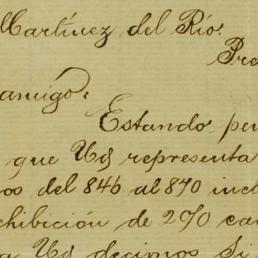 Martínez del Río.
Pre
amigo.
Estando pen
que Uds representa
os del 846 al 870 incl
hibición de 270 ca
a Uds decimos Si